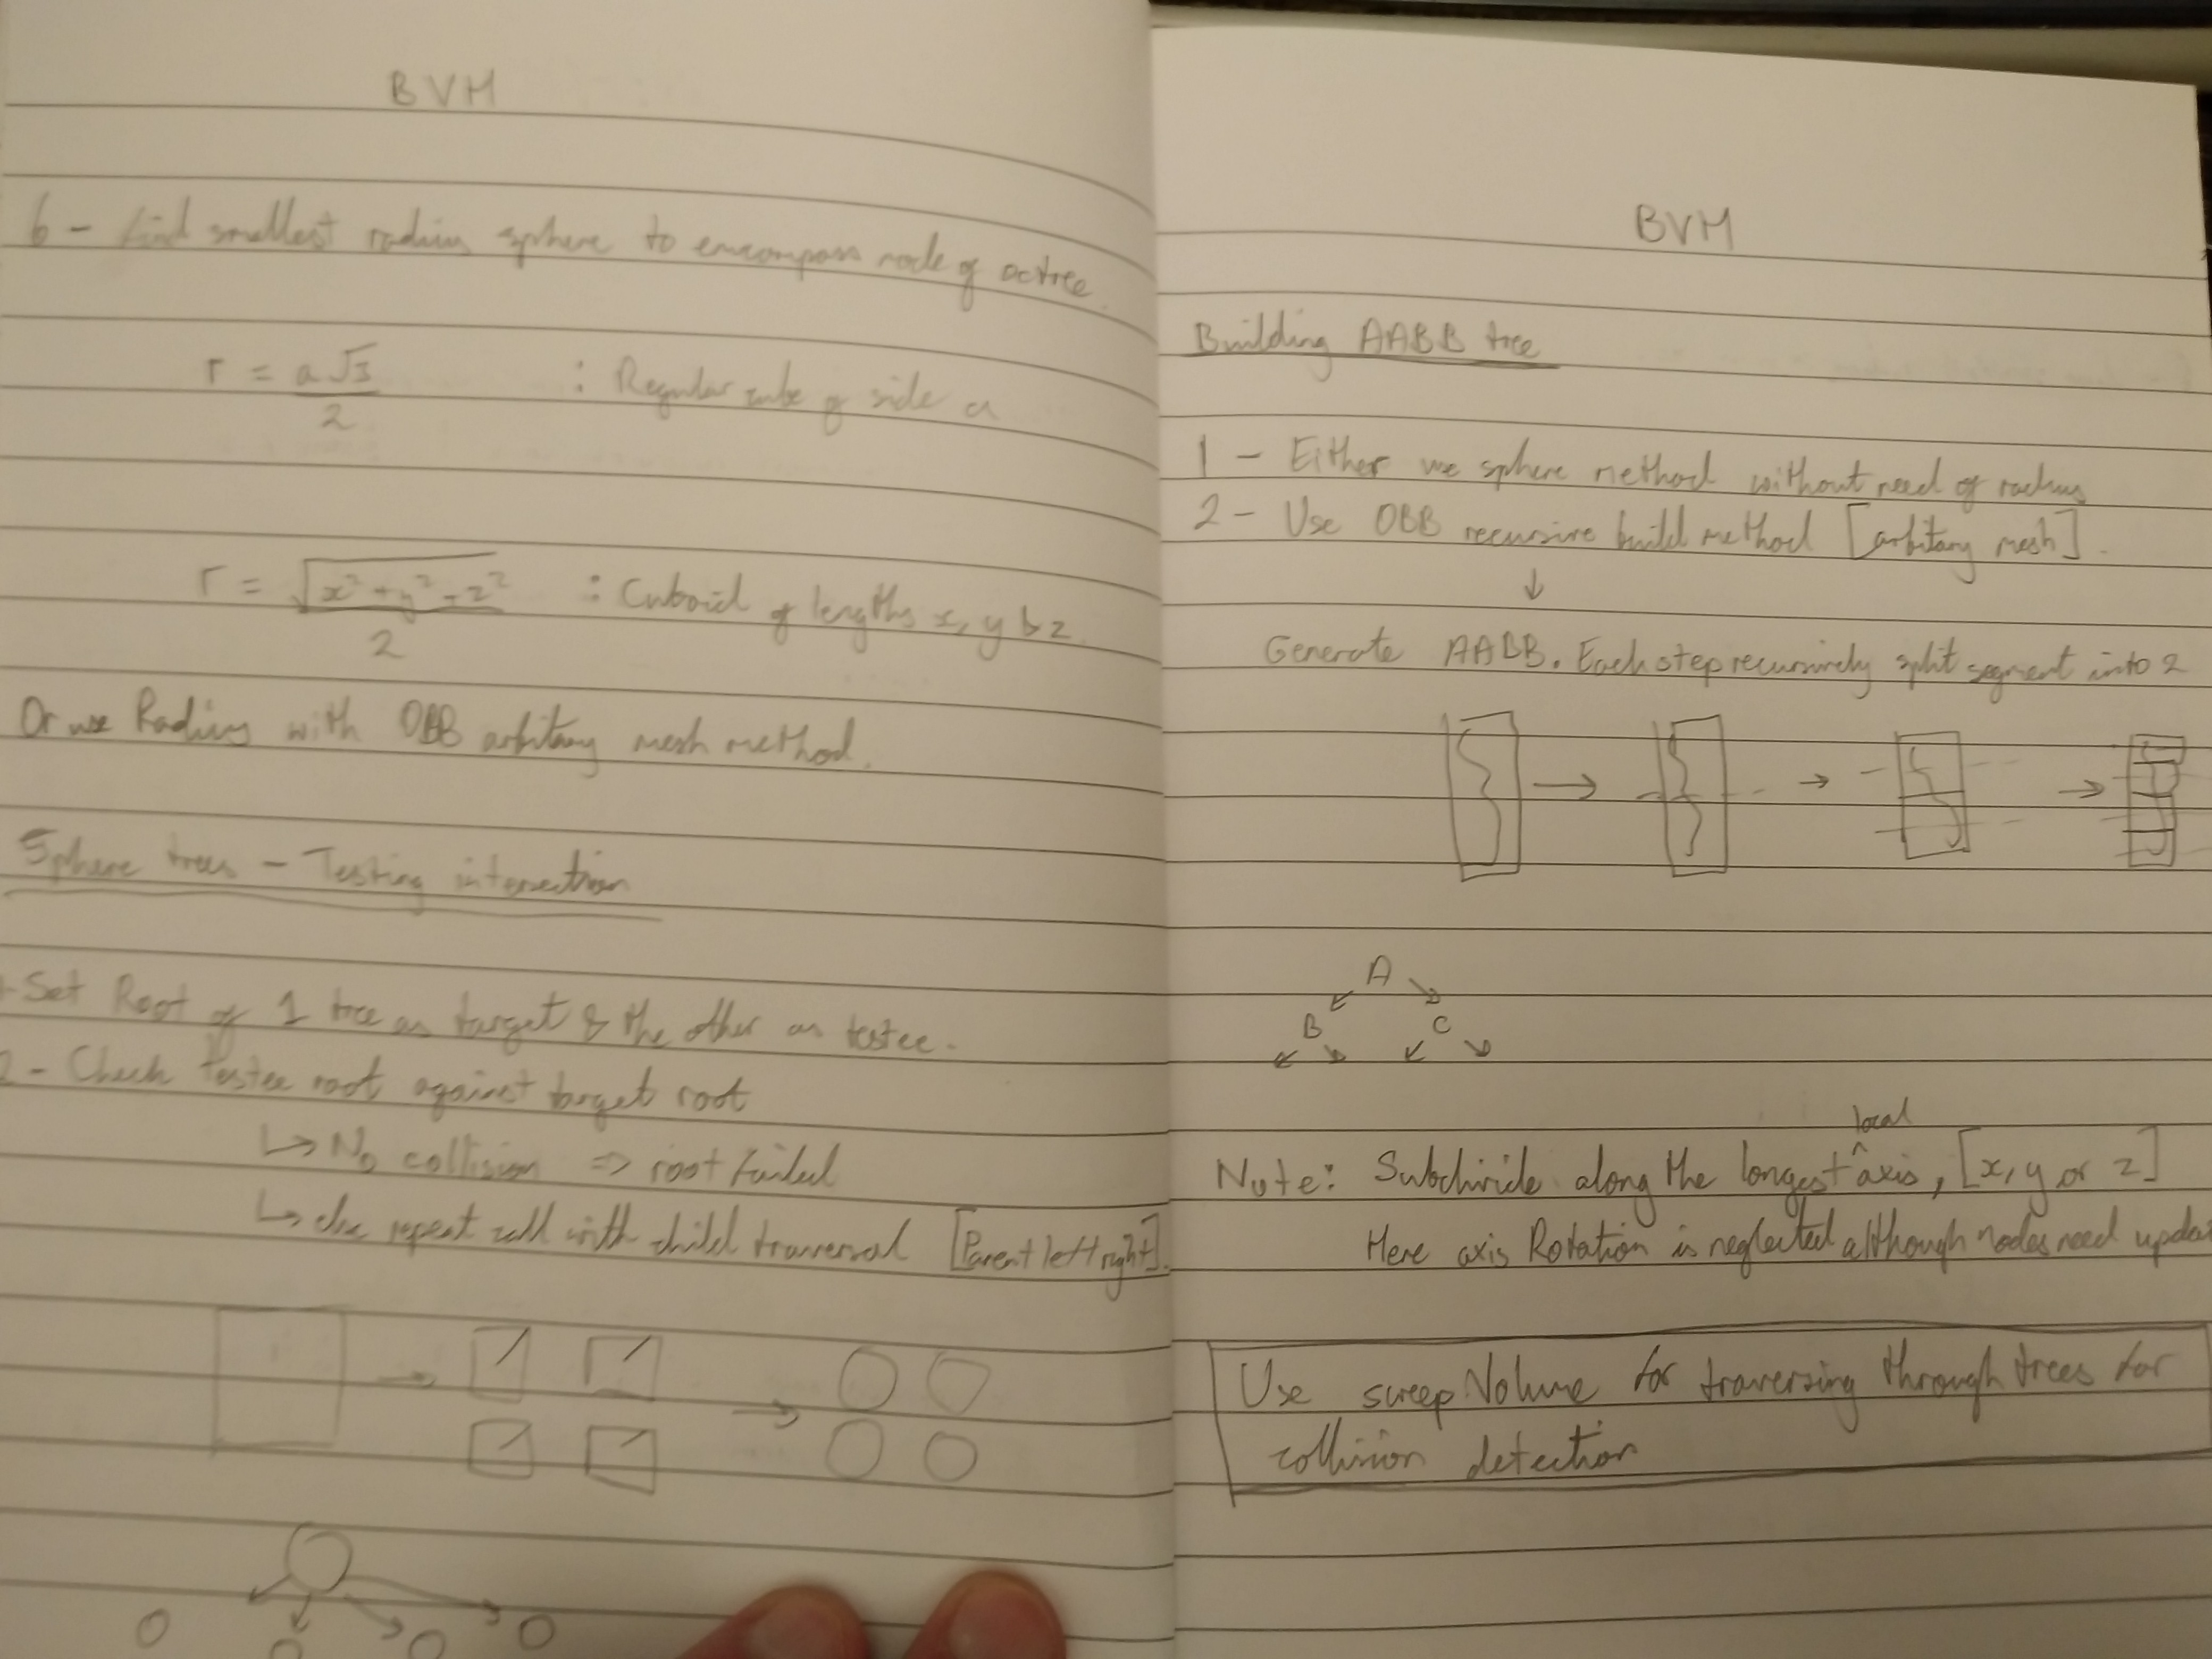 BVH
6 - Find smallest radius sphere to encompass node of octree.
r = a√3 / 2 : Regular cube of side a
r = √x² + y² + z² / 2 : Cuboid of lengths x, y & z
Or use Radius with OBB arbitary mesh method.
Sphere trees - Testing intersection
Set Root of 1 tree as target & the other as testee.
2 - Check testee root against target root
↳ No collision ⇒ root failed
↳ else repeat call with child traversal [Parent left right].
BVH
Building AABB tree
1 - Either use sphere method without need of radius
2 - Use OBB recursive build method [arbitary mesh].
↓
Generate AABB. Each step recursively split segment into 2
A
B C
local
Note: Subdivide along the longest ^ axis, [x, y or z]
Here axis Rotation is neglected although nodes need
Use sweep Volume for traversing through trees for
collision detection